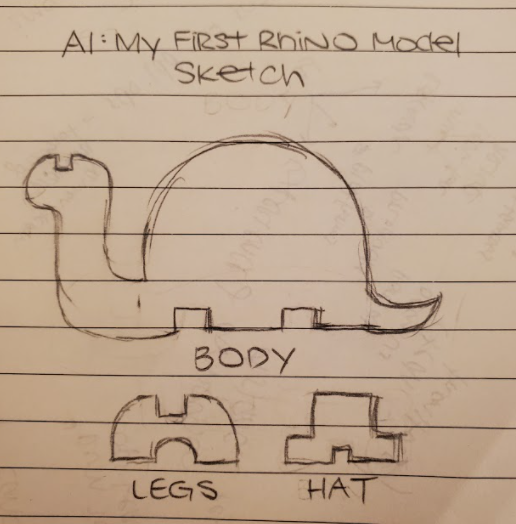 A1: My First Rhino Model
Sketch
BODY
LEGS
HAT